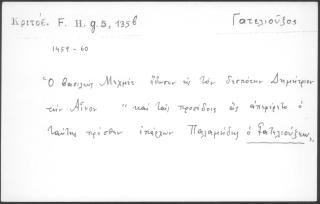 Κριτόβ. F. H. g. 5, 135β Γατελιοῦζος
1459-60
"Ὁ βασιλεὺς Μεχμὲτ ἔδωσεν εἰς τὸν δεσπότην Δημήτριον
τὴν Αἶνον "καὶ τὰς προσόδους ὡς ἀπεφέρετο ὁ
ταύτης πρόσθεν ὑπάρχων Παλαμήδης ὁ Γατελιοῦζος"